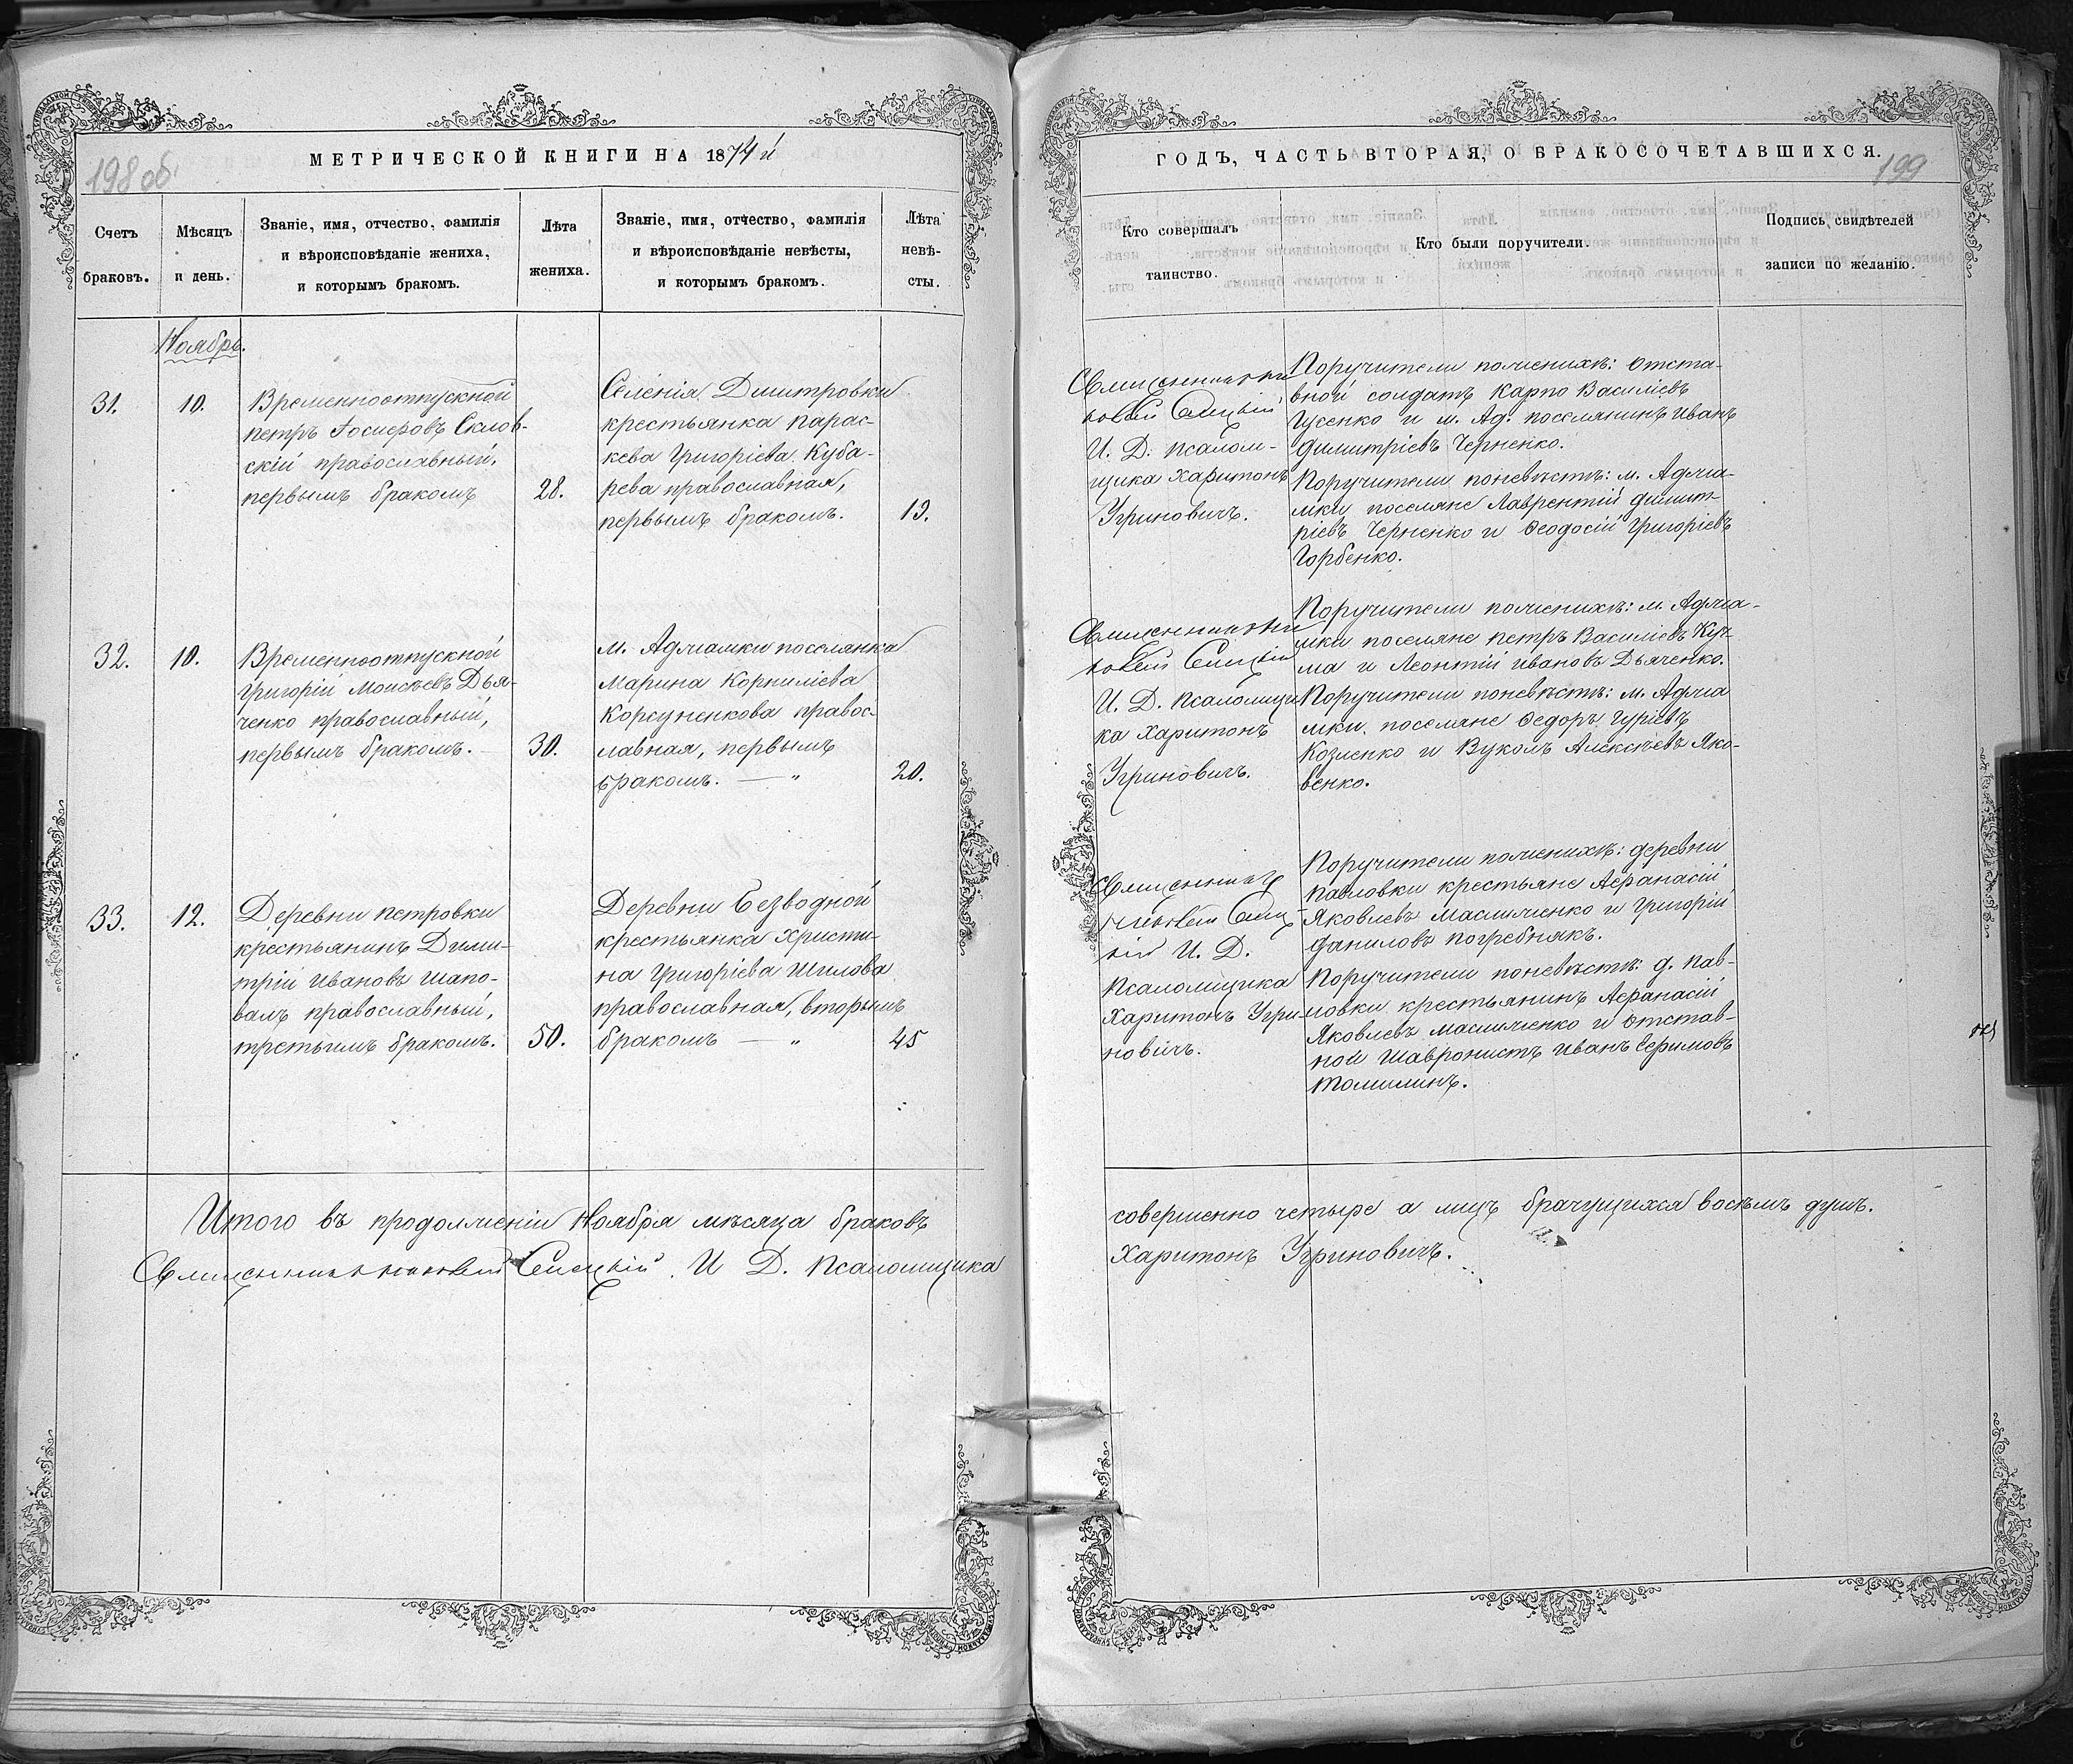 МЕТРИЧЕСКОЙ КНИГИ НА 1874й
198 об.
Счетъ
браковъ.
Мѣсяцъ
и день.
Званіе, имя, отчество, фамилія
и вѣроисповѣданіе жениха,
и которымъ бракомъ.
Лѣта
жениха.
Званіе, имя, отчество, фамилія
и вѣроисповѣданіе невѣсты,
и которымъ бракомъ.
Лѣта
невѣ-
сты.
Ноябрь.
31.
10.
Временноотпускной
Петръ Іосифовъ
скій православный,
первымъ бракомъ
28.
Селенія Дмитровки
крестьянка Парас-
кева Григоріева Куба-
рева православная,
первымъ бракомъ.
19.
32.
10.
Временноотпускной
Григорій Моисѣевъ Дья-
ченко православный,
первымъ бракомъ. —
30.
м. Аджамки поселянка
Марина Корниліева
Корсуненкова правос-
лавная, первымъ
бракомъ. — "
20.
33.
12.
Деревни Петровки
крестьянинъ Дими-
трій Ивановъ Шапо-
валъ православный,
третьимъ бракомъ.
50.
Деревни Безводной
крестьянка Христи-
на Григоріева Шилова
православная, вторымъ
бракомъ — "
45
Итого въ продолженіи Ноября мѣсяца браковъ
Священникъ И Д. Псаломщика
ГОДЪ, ЧАСТЬ ВТОРАЯ, О БРАКОСОЧЕТАВШИХСЯ.
199
Кто совершалъ
таинство.
Кто были поручители.
Подпись свидѣтелей
записи по желанію.
Священникъ
И. Д. Псалом-
щика Харитонъ
Угриновичъ.
Поручители пожениxѣ: отста-
вной солдатъ Карпо Василіевъ
Гусенко и м. Ад. поселянинъ Иванъ
Димитріевъ Черненко.
Поручители поневѣстѣ: м. Аджа-
мки поселяне Лаврентій Димит-
ріевъ Черненко и Феодосій Григоріевъ
Горбенко.
Священникъ
И. Д. Псаломщи
ка Харитонъ
Угриновичъ.
Поручители поженихѣ: м. Аджа-
мки поселяне Петръ Василіевъ Куч-
ма и Леонтій Ивановъ Дьяченко.
Поручители поневѣстѣ: м. Аджа
мки. поселяне Федоръ Гуріевъ
Козленко и Вуколъ Алексѣевъ Яко-
венко.
Священникъ
И. Д.
Псаломщика
Харитонъ Угри
новичъ.
Поручители поженихѣ: деревни
Павловки крестьяне Афанасій
Яковлевъ Масличенко и Григорій
Даниловъ Погребнякъ.
Поручители поневѣстѣ: д. Пав-
ловки крестьянинъ Афанасій
Яковлевъ Масличенко и отстав-
ной Иванъ Ефимовъ
Томилинъ.
совершенно четыре а лицъ брачущихся восѣмъ душъ.
Харитонъ Угриновичъ.